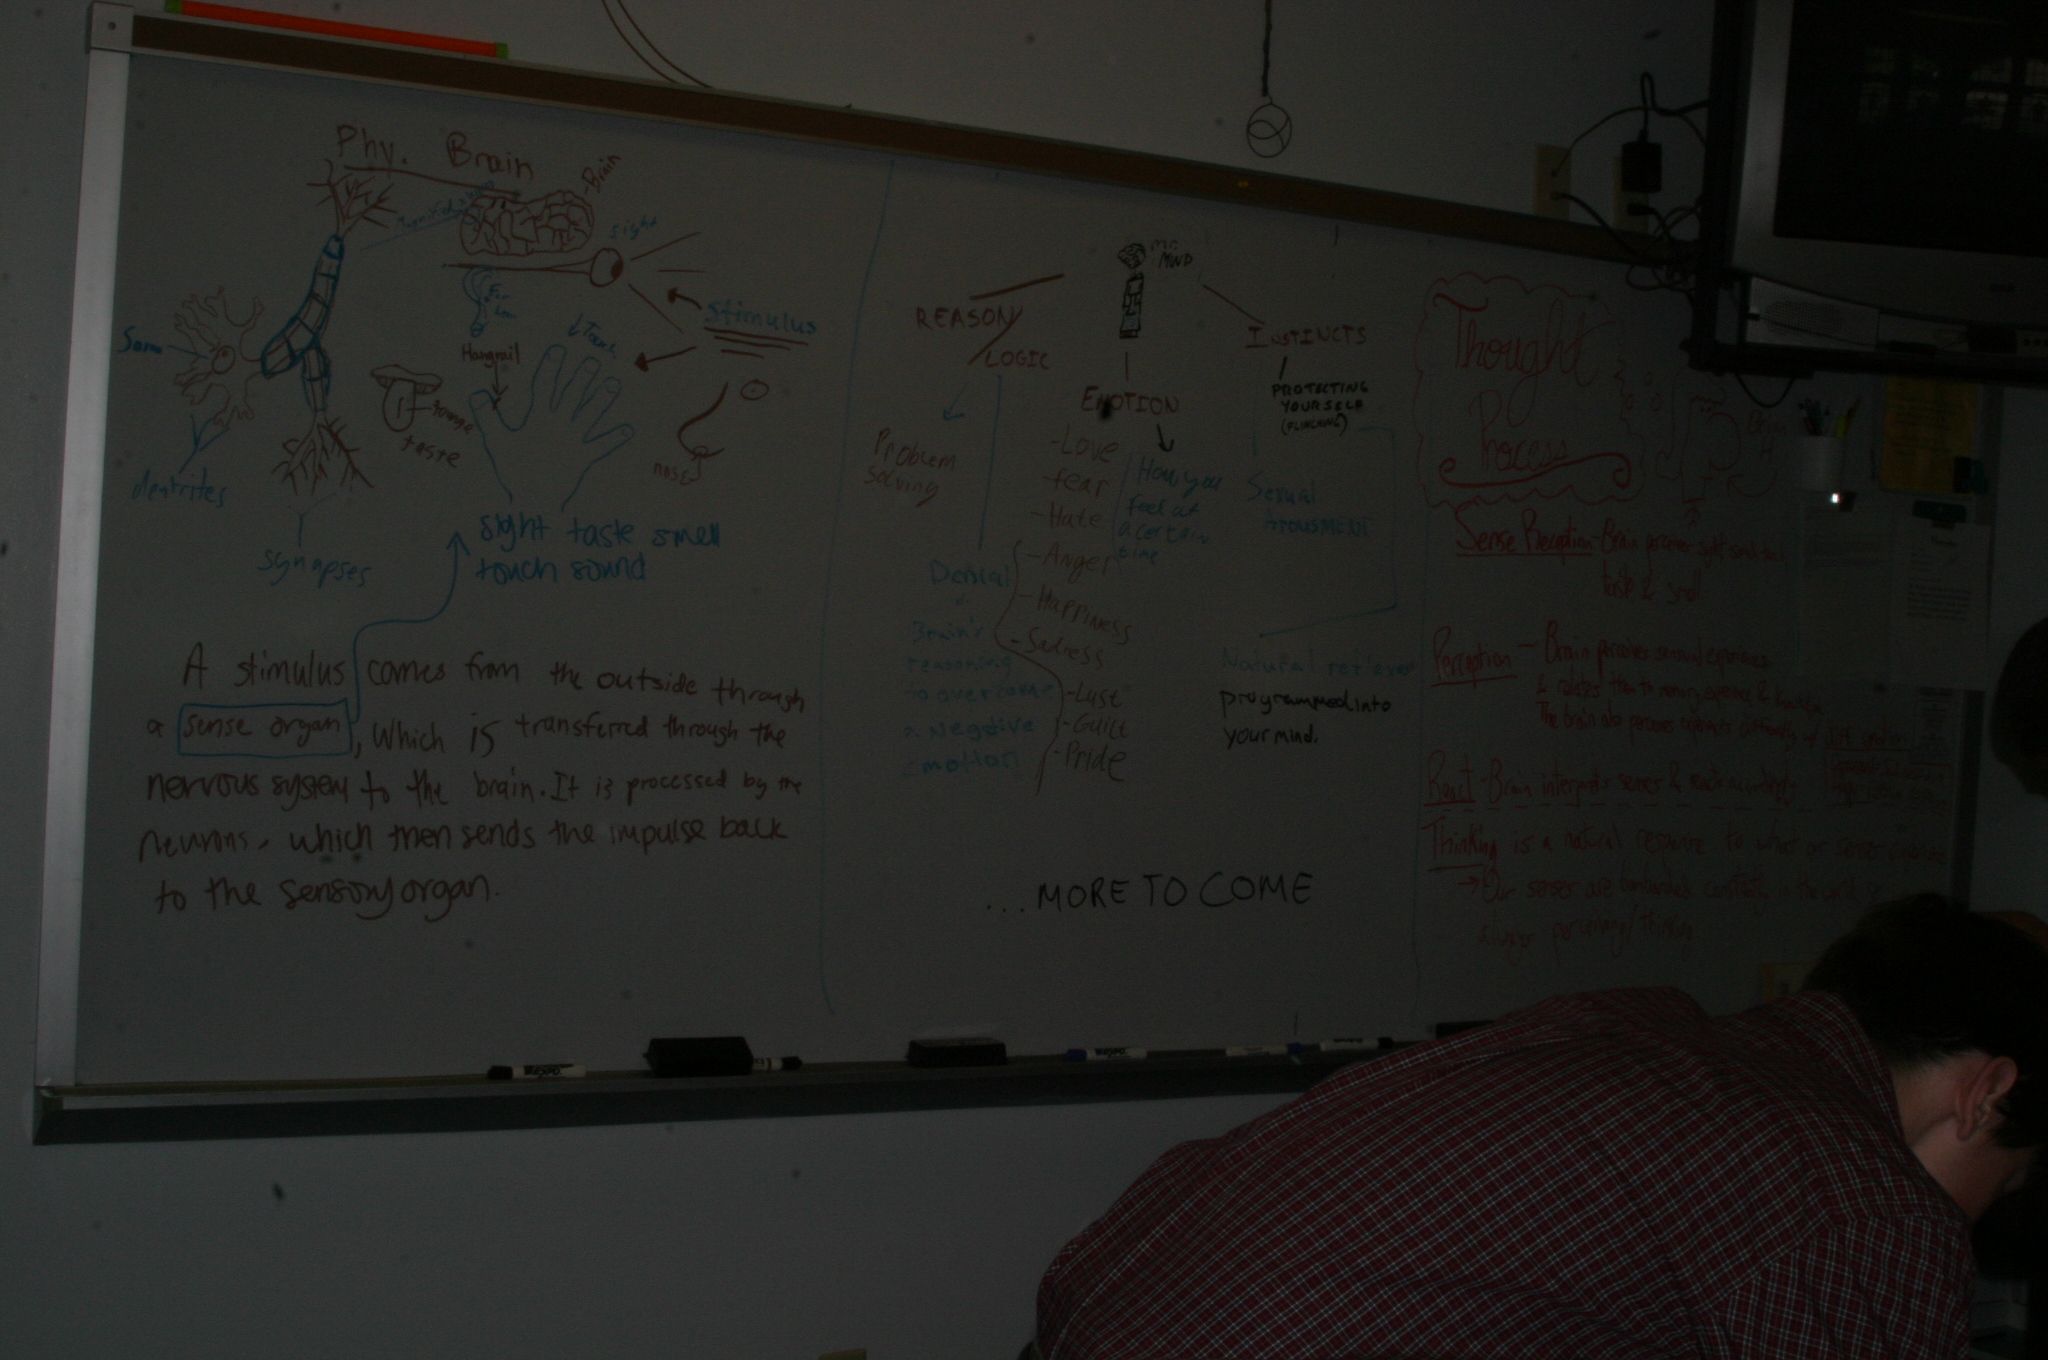 Phy. Brain
Brain
sight
Stimulus
Soma
Hangnail
Touch
dentrites
taste
nose
synapses
sight taste smell
touch sound
A stimulus comes from the outside through
a sense organ, which is transferred through the
nervous system to the brain. It is processed by the
neurons, which then sends the impulse back
to the sensory organ.
MR.
MIND
REASON/
LOGIC
Problem
solving
Denial
Brain's
reasoning
to overcome
a Negative
emotion
EMOTION
-Love
-fear
-Hate
-Anger
-Happiness
-Sadness
-Lust
-Guilt
-Pride
How you
feel at
a certain
time
INSTINCTS
PROTECTING
YOURSELF
(FLINCHING)
Sexual
Natural reflexes
programmed into
your mind.
...MORE TO COME
Thought
Process
Sense Reception - Brain perceives sight, sound, touch,
taste & smell
Perception - Brain perceives sensory experiences
& relates them to memory, experience &
The brain also perceives differently
React - Brain interprets senses & reacts accordingly
Thinking is a natural response to what our senses
→ Our senses are bombarded constantly in the world
always perceiving/thinking